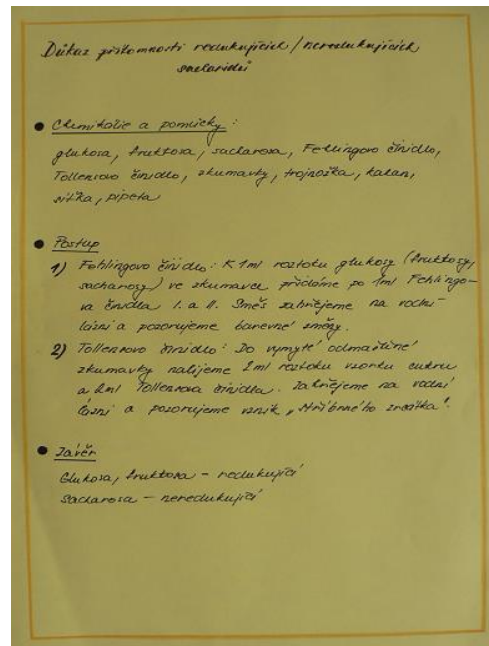 Důkaz přítomnosti redukujících/neredukujících
sacharidů
Chemikálie a pomůcky:
glukosa, fruktosa, sacharosa, Fehlingovo činidlo,
Tollensovo činidlo, zkumavky, trojnožka, kahan,
síťka, pipeta
Postup
1) Fehlingovo činidlo: K 1ml roztoku glukosy (fruktosy,
sacharosy) ve zkumavce přidáme po 1ml Fehlingo-
va činidla I. a II. Směs zahřejeme na vodní
lázni a pozorujeme barevné změny.
2) Tollensovo činidlo: Do vymyté odmaštěné
zkumavky nalijeme 2ml roztoku vzorku cukru
a 2ml Tollensova činidla. Zahřejeme na vodní
lázni a pozorujeme vznik „stříbrného zrcátka".
Závěr
Glukosa, fruktosa - redukující
Sacharosa - neredukující